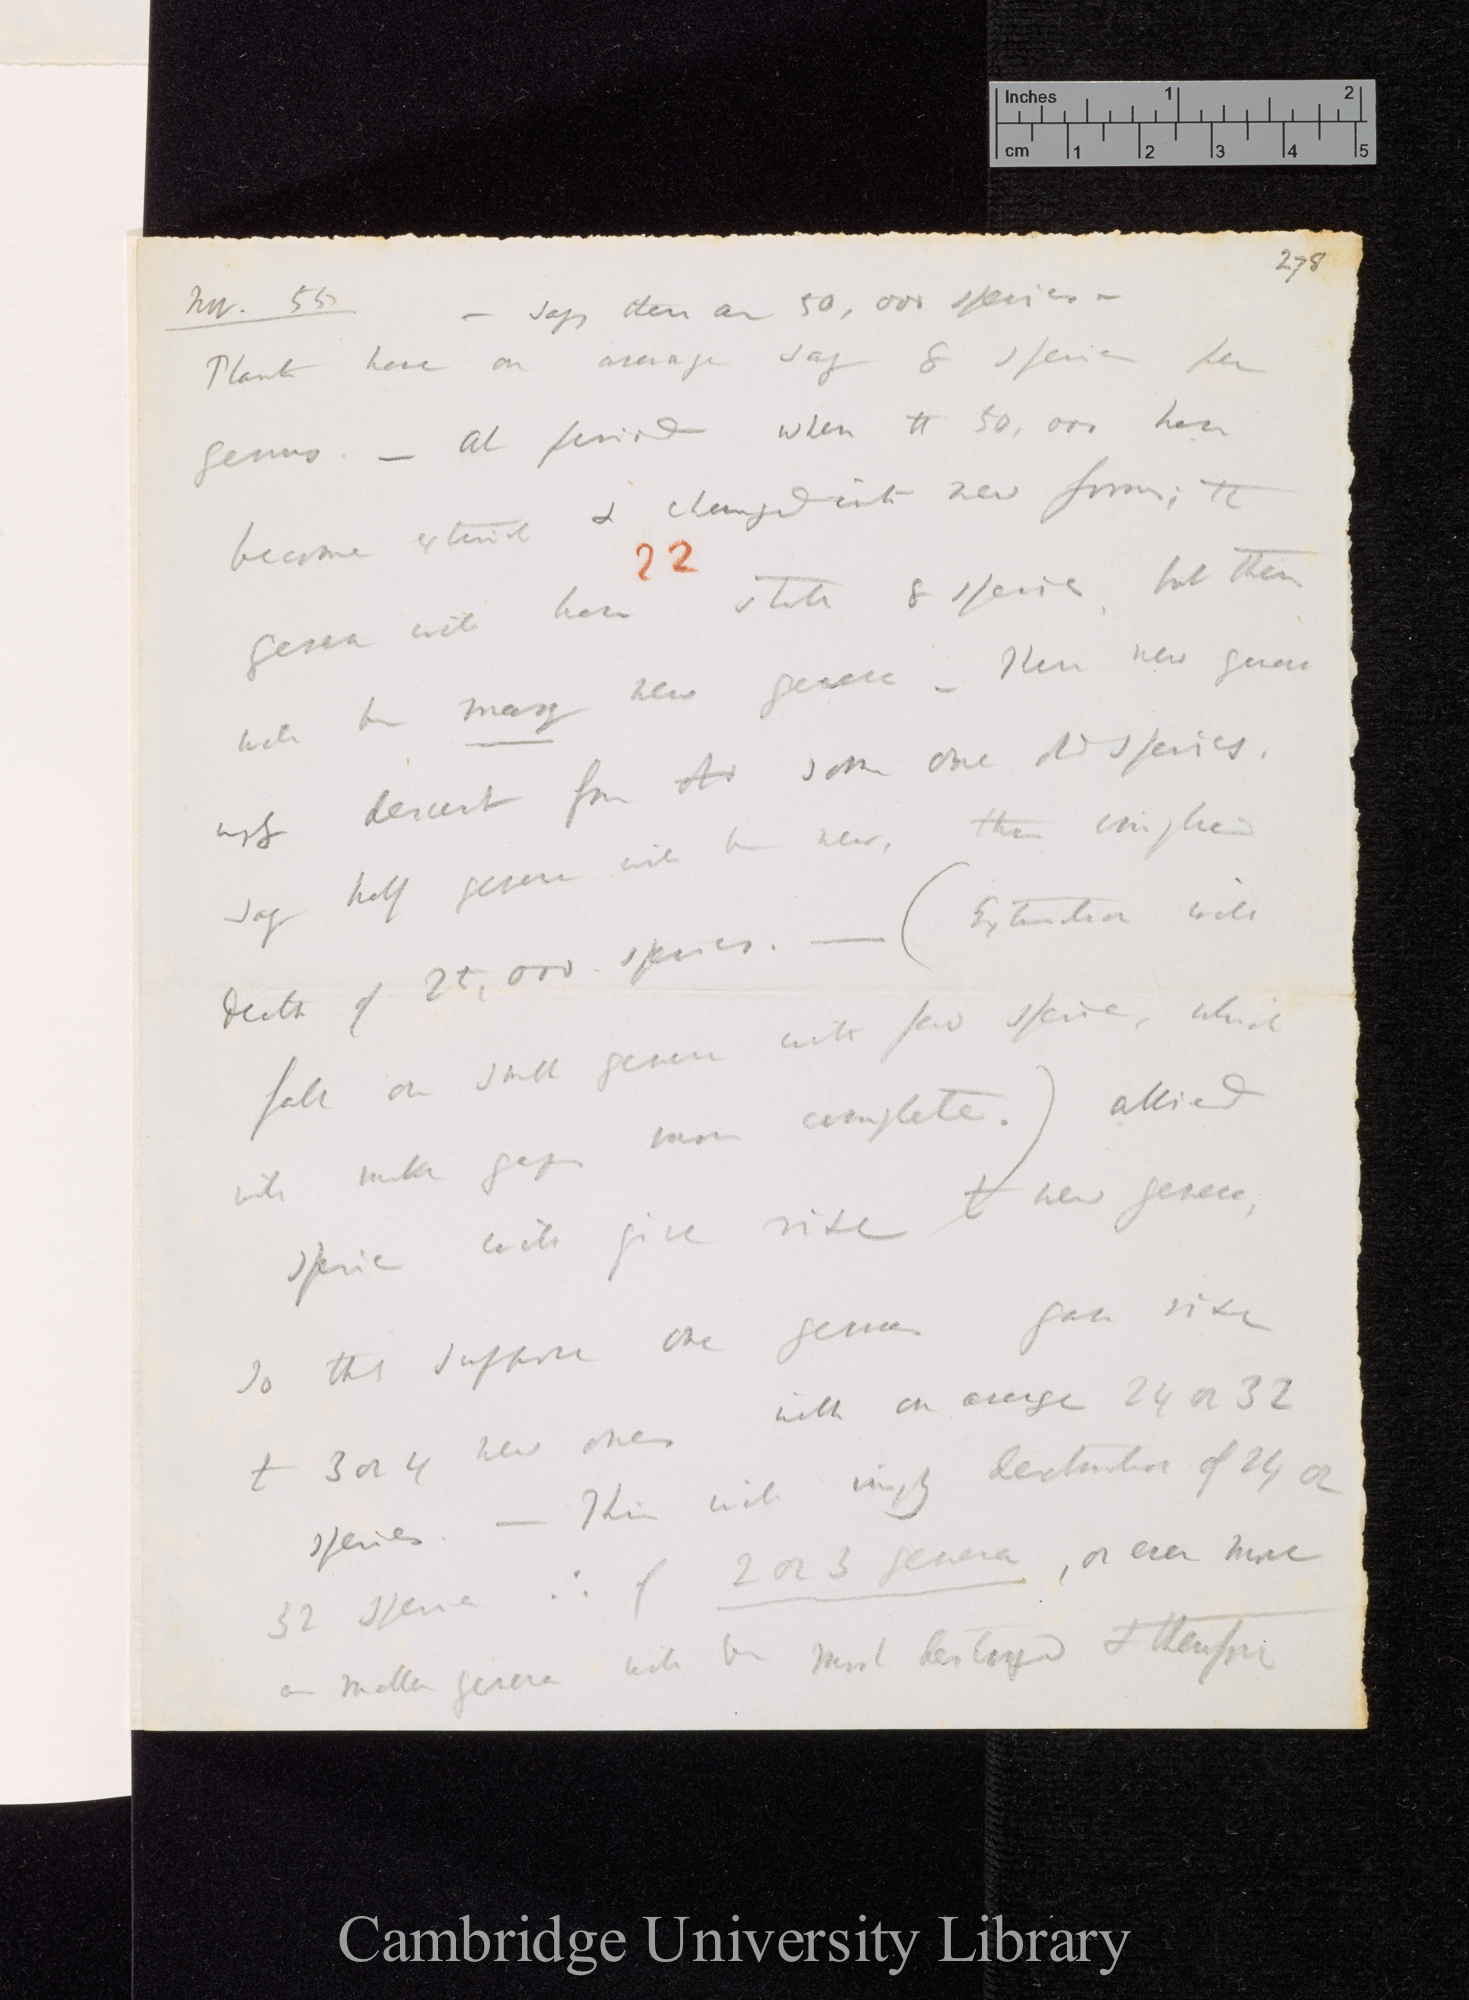 Inches 1 2
cm 1 2 3 4 5
278
Nov. 55 — Says there are 50,000 species —
Plants have on average say 8 species per
genus. — At period when the 50,000 have
become extinct & changed into new forms; the
22
genera will have still 8 species, but there
will be many new genera — These new genera
must descent from some one old species.
Say half genera will be new, then implied
death of 25,000 species. — (Extinction will
fall on small genera with few species, which
will make gaps more complete.) allied
species will give rise to new genera,
So that suppose one genus gave rise
to 3 or 4 new ones with on average 24 or 32
species. — This will imply destruction of 24 or
32 species ∴ of 2 or 3 genera, or even more
as smaller genera will be most destroyed & therefore
Cambridge University Library